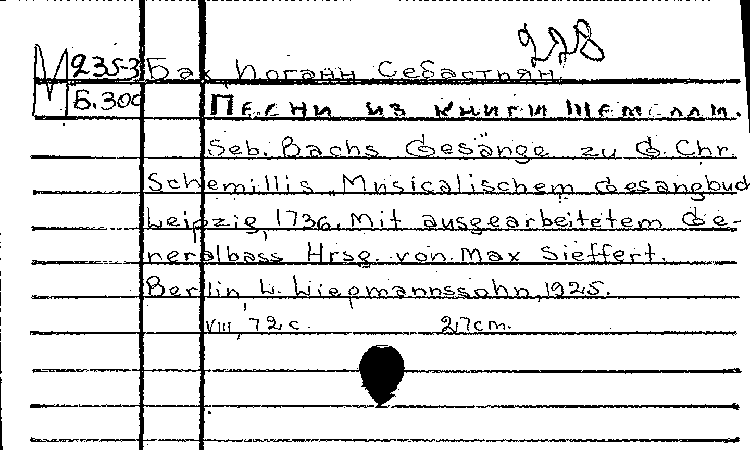 228
М 235-3 Бах, Иоганн Себастьян
Б.300 Песни из книги Шемелли.
Seb. Bachs Gesänge zu G. Chr.
Schemillis Musicalischem Gesangbuch
Leipzig, 1736. Mit ausgearbeitetem Ge-
neralbass Hrsg. von Max Sieffert.
Berlin, L. Liepmannssohn, 1925.
VIII, 72 с. 27 cm.